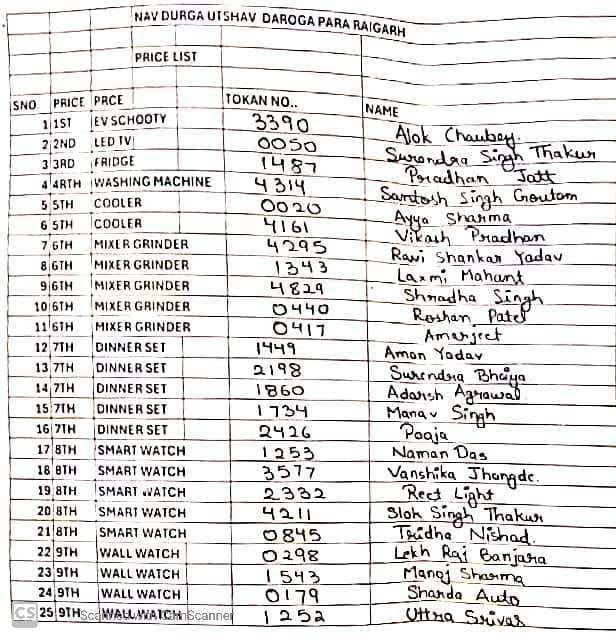 NAV DURGA UTSHAV DAROGA PARA RAIGARH
PRICE LIST
SNO PRICE PRCE TOKAN NO.. NAME
1 1ST EV SCHOOTY 3390 Alok Chaubey.
2 2ND LED TV 0050 Surendra Singh Thakur
3 3RD FRIDGE 1487 Pradhan Jatt
4 4RTH WASHING MACHINE 4314 Santosh Singh Goutam
5 5TH COOLER 0020 Ayya Sharma
6 5TH COOLER 4161 Vikash Pradhan
7 6TH MIXER GRINDER 4295 Ravi Shankar Yadav
8 6TH MIXER GRINDER 1343 Laxmi Mahant
9 6TH MIXER GRINDER 4829 Shradha Singh
10 6TH MIXER GRINDER 0440 Roshan Patel
11 6TH MIXER GRINDER 0417 Amarjeet
12 7TH DINNER SET 1449 Aman Yadav
13 7TH DINNER SET 2198 Surendra Bhaiya
14 7TH DINNER SET 1860 Adarsh Agrawal
15 7TH DINNER SET 1734 Manav Singh
16 7TH DINNER SET 2426 Pooja
17 8TH SMART WATCH 1253 Naman Das
18 8TH SMART WATCH 3577 Vanshika Jhangde.
19 8TH SMART WATCH 2332 Rect Light
20 8TH SMART WATCH 4211 Slok Singh Thakur
21 8TH SMART WATCH 0845 Tridha Nishad.
22 9TH WALL WATCH 0298 Lekh Raj Banjara
23 9TH WALL WATCH 1543 Manoj Sharma
24 9TH WALL WATCH 0179 Sharda Auto
25 9TH WALL WATCH 1252 Uttra Srivas
CS Scanned with CamScanner